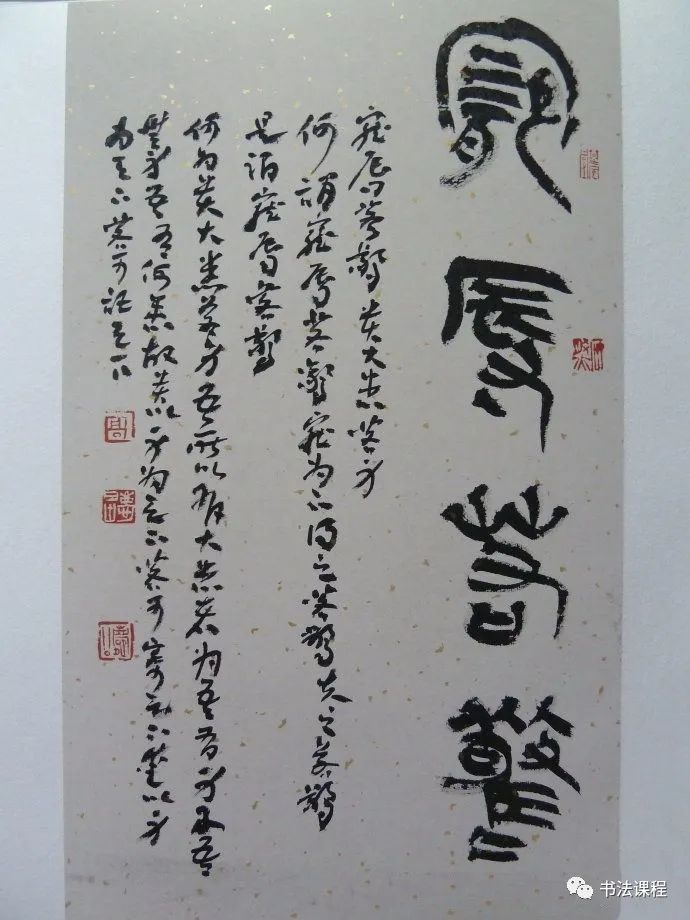 寵辱若驚
寵辱若驚貴大患若身
何謂寵辱若驚寵為下得之若驚失之若驚
是謂寵辱若驚
何為貴大患若身吾所以有大患者為吾有身及吾
無身吾有何患故貴以身為天下若可寄天下愛以身
為天下若可託天下
书法课程